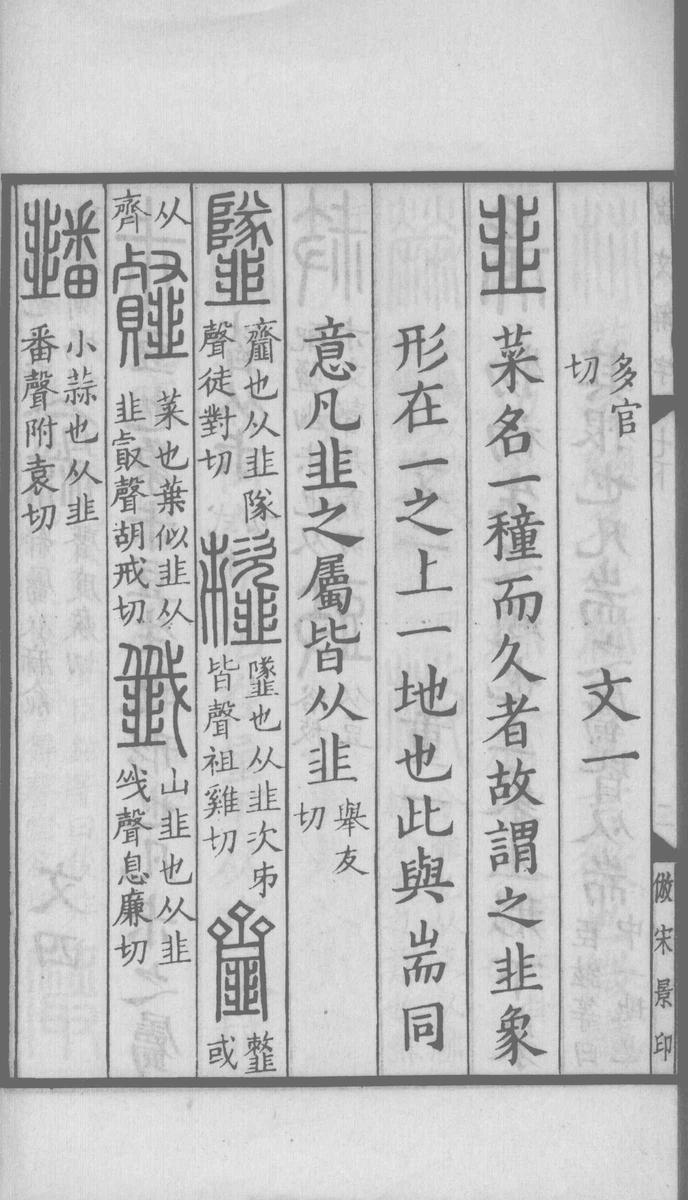 倣宋景印
多官切 文一
韭 菜名一穜而久者故謂之韭象
形在一之上一地也此與耑同
意凡韭之屬皆从韭 舉友切
𩐌 齏也从韭隊聲徒對切 䪢 𩐌也从韭次𠂔皆聲祖雞切 齏 䪢或
从齊 韰 菜也葉似韭从韭㕡聲胡戒切 韱 山韭也从韭㦰聲息廉切
䪤 小蒜也从韭番聲附袁切